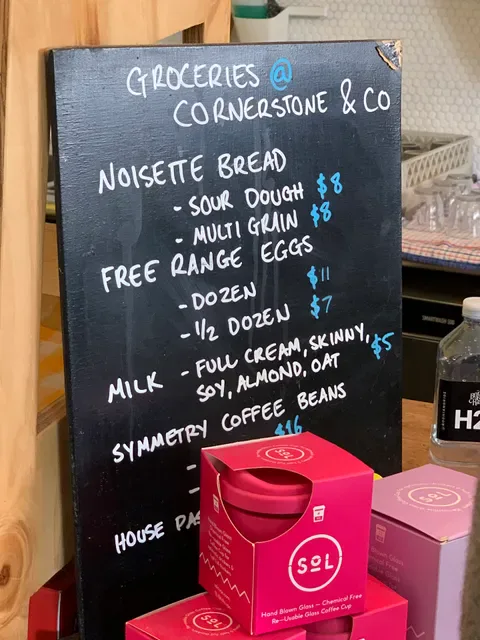 GROCERIES @
CORNERSTONE & CO
NOISETTE BREAD
- SOUR DOUGH $8
- MULTI GRAIN $8
FREE RANGE EGGS
- DOZEN $11
- 1/2 DOZEN $7
MILK - FULL CREAM, SKINNY, $5
SOY, ALMOND, OAT
SYMMETRY COFFEE BEANS
$16
-
HOUSE
SOL
SOL
Hand Blown Glass — Chemical Free
Re-Usable Glass Coffee Cup
SOL
SOL
H2